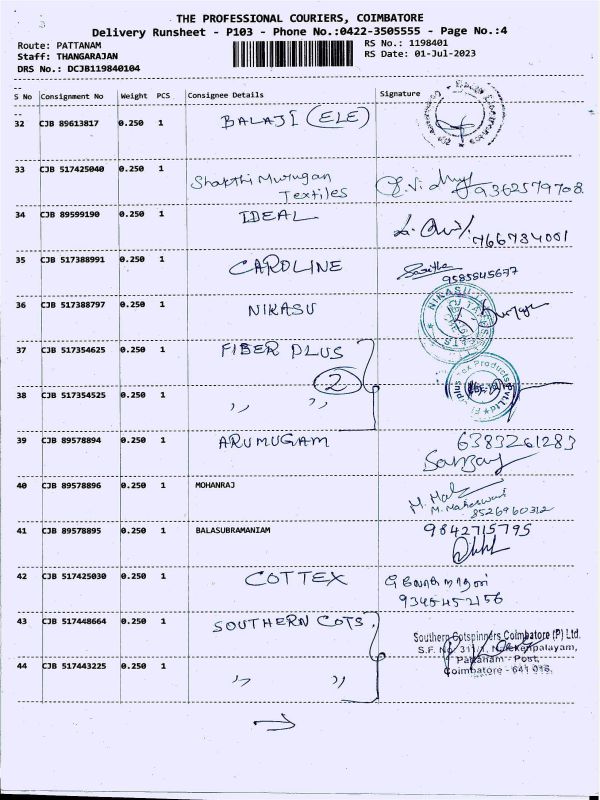 THE PROFESSIONAL COURIERS, COIMBATORE
Delivery Runsheet - P103 - Phone No.:0422-3505555 - Page No.:4
Route: PATTANAM
RS No.: 1198401
Staff: THANGARAJAN
RS Date: 01-Jul-2023
DRS No.: DCJB119840104
S No Consignment No Weight PCS Consignee Details Signature
32 CJB 89613817 0.250 1 BALAJI (ELE)
33 CJB 517425040 0.250 1 Shakthi Murugan
Textiles
9362579708
34 CJB 89599190 0.250 1 IDEAL
7667734001
35 CJB 517388991 0.250 1 CAROLINE
9585545677
36 CJB 517388797 0.250 1 NIKASU
NIKASU
37 CJB 517354625 0.250 1 FIBER PLUS
2
38 CJB 517354525 0.250 1 ,, ,,
39 CJB 89578894 0.250 1 ARUMUGAM 6383261283
Sanjay
40 CJB 89578896 0.250 1 MOHANRAJ
M. Maheswari
8526960312
41 CJB 89578895 0.250 1 BALASUBRAMANIAM 9842715795
42 CJB 517425030 0.250 1 COTTEX
9345452156
43 CJB 517448664 0.250 1 SOUTHERN COTS
Southern Cotspinners Coimbatore (P) Ltd.
S.F. No. 311/1, Naickenpalayam,
Pattanam - Post,
44 CJB 517443225 0.250 1 ,, ,,
Coimbatore - 641 016.